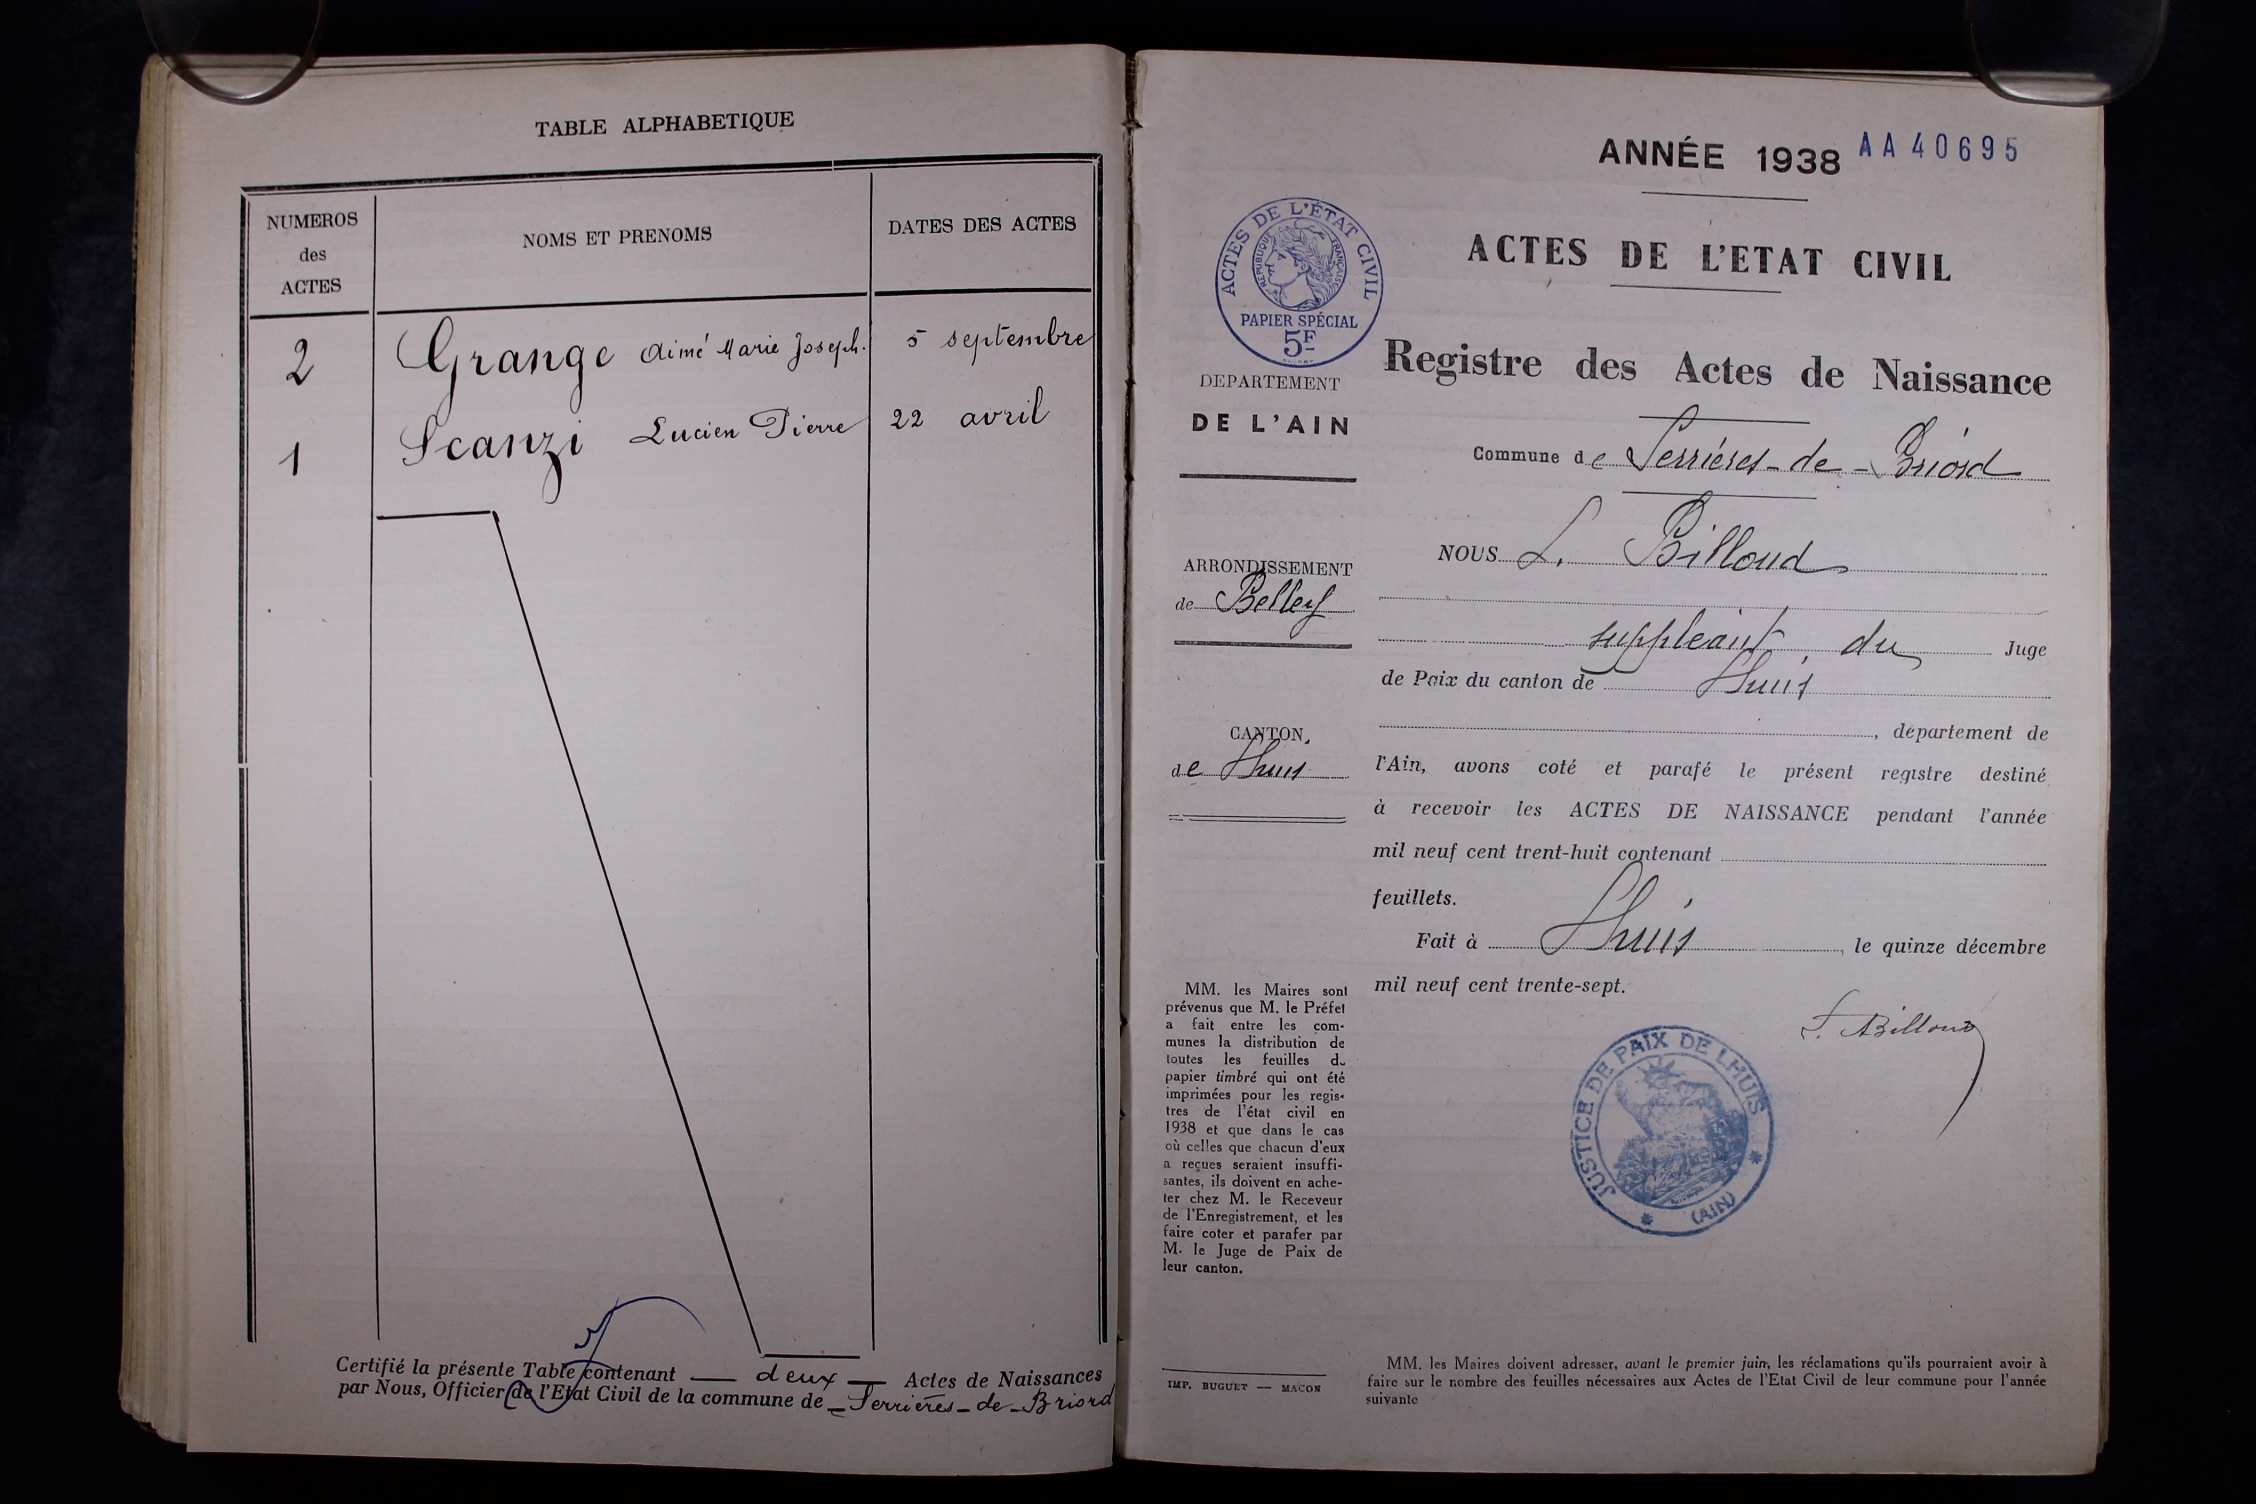 TABLE ALPHABETIQUE
NUMEROS
des
ACTES
NOMS ET PRENOMS
DATES DES ACTES
2 Grange Aimé Marie Joseph. 5 septembre
1 Scanzi Lucien Pierre 22 avril
Certifié la présente Table contenant — deux — Actes de Naissances
par Nous, Officier de l'Etat Civil de la commune de – Serrières-de-Briord
ANNÉE 1938 AA40695
ACTES DE L'ÉTAT CIVIL
RÉPUBLIQUE FRANÇAISE
PAPIER SPÉCIAL
5F
DEPARTEMENT
DE L'AIN
ARRONDISSEMENT
de Belley
CANTON
de Lhuis
MM. les Maires sont
prévenus que M. le Préfet
a fait entre les com-
munes la distribution de
toutes les feuilles du
papier timbré qui ont été
imprimées pour les regis-
tres de l'état civil en
1938 et que dans le cas
où celles que chacun d'eux
a reçues seraient insuffi-
santes, ils doivent en ache-
ter chez M. le Receveur
de l'Enregistrement, et les
faire coter et parafer par
M. le Juge de Paix de
leur canton.
IMP. BUGUET — MACON
ACTES DE L'ETAT CIVIL
Registre des Actes de Naissance
Commune de Serrières-de-Briord
NOUS L. Billoud
suppléant du Juge
de Paix du canton de Lhuis
, département de
l'Ain, avons coté et parafé le présent registre destiné
à recevoir les ACTES DE NAISSANCE pendant l'année
mil neuf cent trent-huit contenant
feuillets.
Fait à Lhuis, le quinze décembre
mil neuf cent trente-sept.
L. Billoud
JUSTICE DE PAIX DE LHUIS
(AIN)
MM. les Maires doivent adresser, avant le premier juin, les réclamations qu'ils pourraient avoir à
faire sur le nombre des feuilles nécessaires aux Actes de l'Etat Civil de leur commune pour l'année
suivante